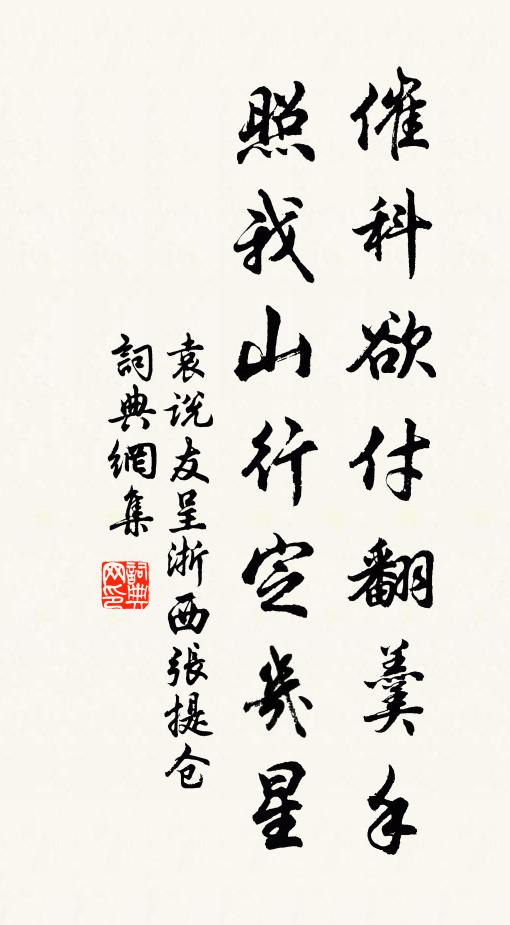 催科欲付翻羹手
照我山行定幾星
袁说友呈浙西張提仓
詞典網集
詞典网印